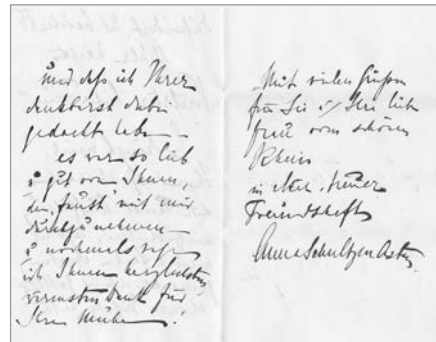 und daß ich Ihrer
dankbarst dabei
gedacht habe —
es war so lieb
& gut von Ihnen,
den "Faust" mit mir
durchzunehmen —
& nochmals sage
ich Ihnen herzlichsten,
wärmsten Dank für
Ihre Mühen!
Mit vielen Grüßen
für Sie & Ihre liebe
Frau vom schönen
Rhein
in alter, treuer
Freundschaft
Anna Schultzen Asten